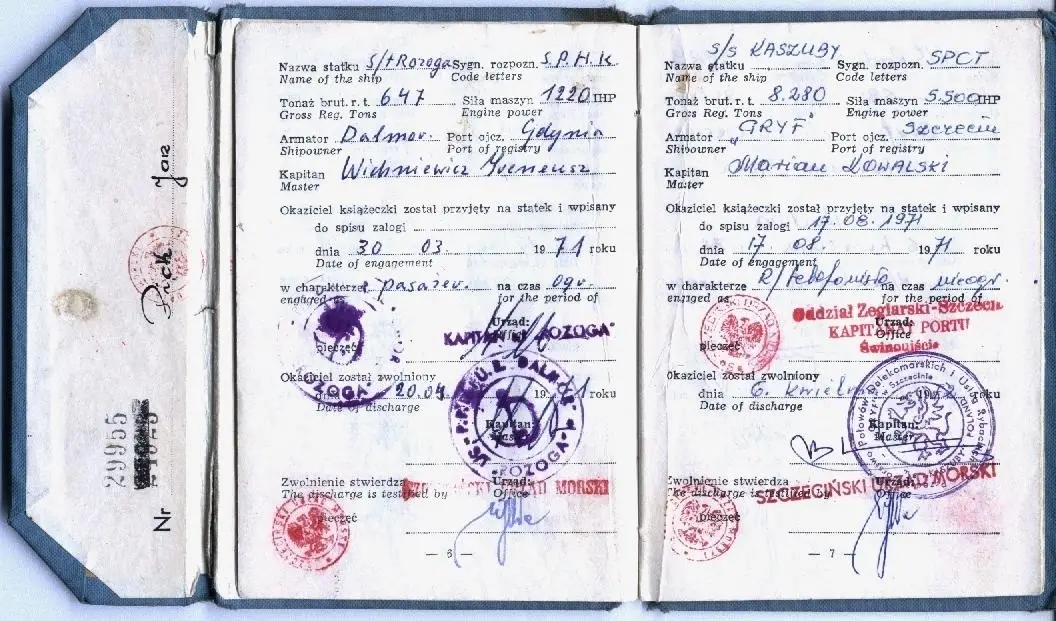 Nr 29955
Nazwa statku s/t Rozoga Sygn. rozpozn. S.P.H.K.
Name of the ship Code letters
Tonaż brut. r. t. 647 Siła maszyn 1220 IHP
Gross Reg. Tons Engine power
Armator Dalmor. Port ojcz. Gdynia
Shipowner Port of registry
Kapitan Wichniewicz Ireneusz
Master
Okaziciel książeczki został przyjęty na statek i wpisany
do spisu załogi
dnia 30 03. 1971 roku
Date of engagement
w charakterze pasażer. na czas
engaged as for the period of
Urząd:
Office
KAPITAN "ROZOGA"
pieczęć
Okaziciel został zwolniony
dnia 20.04 19 71 roku
Date of discharge
Kapitan:
Master
Zwolnienie stwierdza Urząd:
The discharge is testified by Office
URZĄD MORSKI
pieczęć
— 6 —
s/s KASZUBY
Nazwa statku Sygn. rozpozn. SPCT
Name of the ship Code letters
Tonaż brut. r. t. 8.280 Siła maszyn 5.500 IHP
Gross Reg. Tons Engine power
Armator "GRYF" Port ojcz. Szczecin
Shipowner Port of registry
Kapitan Marian KOWALSKI
Master
Okaziciel książeczki został przyjęty na statek i wpisany
do spisu załogi 17.08.1971
dnia 17. 08. 1971 roku
Date of engagement
w charakterze R/telefonista na czas nieogr.
engaged as for the period of
Oddział Żeglarski-Szczecin
KAPITANAT PORTU
Świnoujście
Urząd:
Office
pieczęć
Okaziciel został zwolniony
dnia 6. kwietnia 19 roku
Date of discharge
Kapitan:
Master
Zwolnienie stwierdza Urząd:
The discharge is testified by Office
SZCZECIŃSKI URZĄD MORSKI
pieczęć
— 7 —